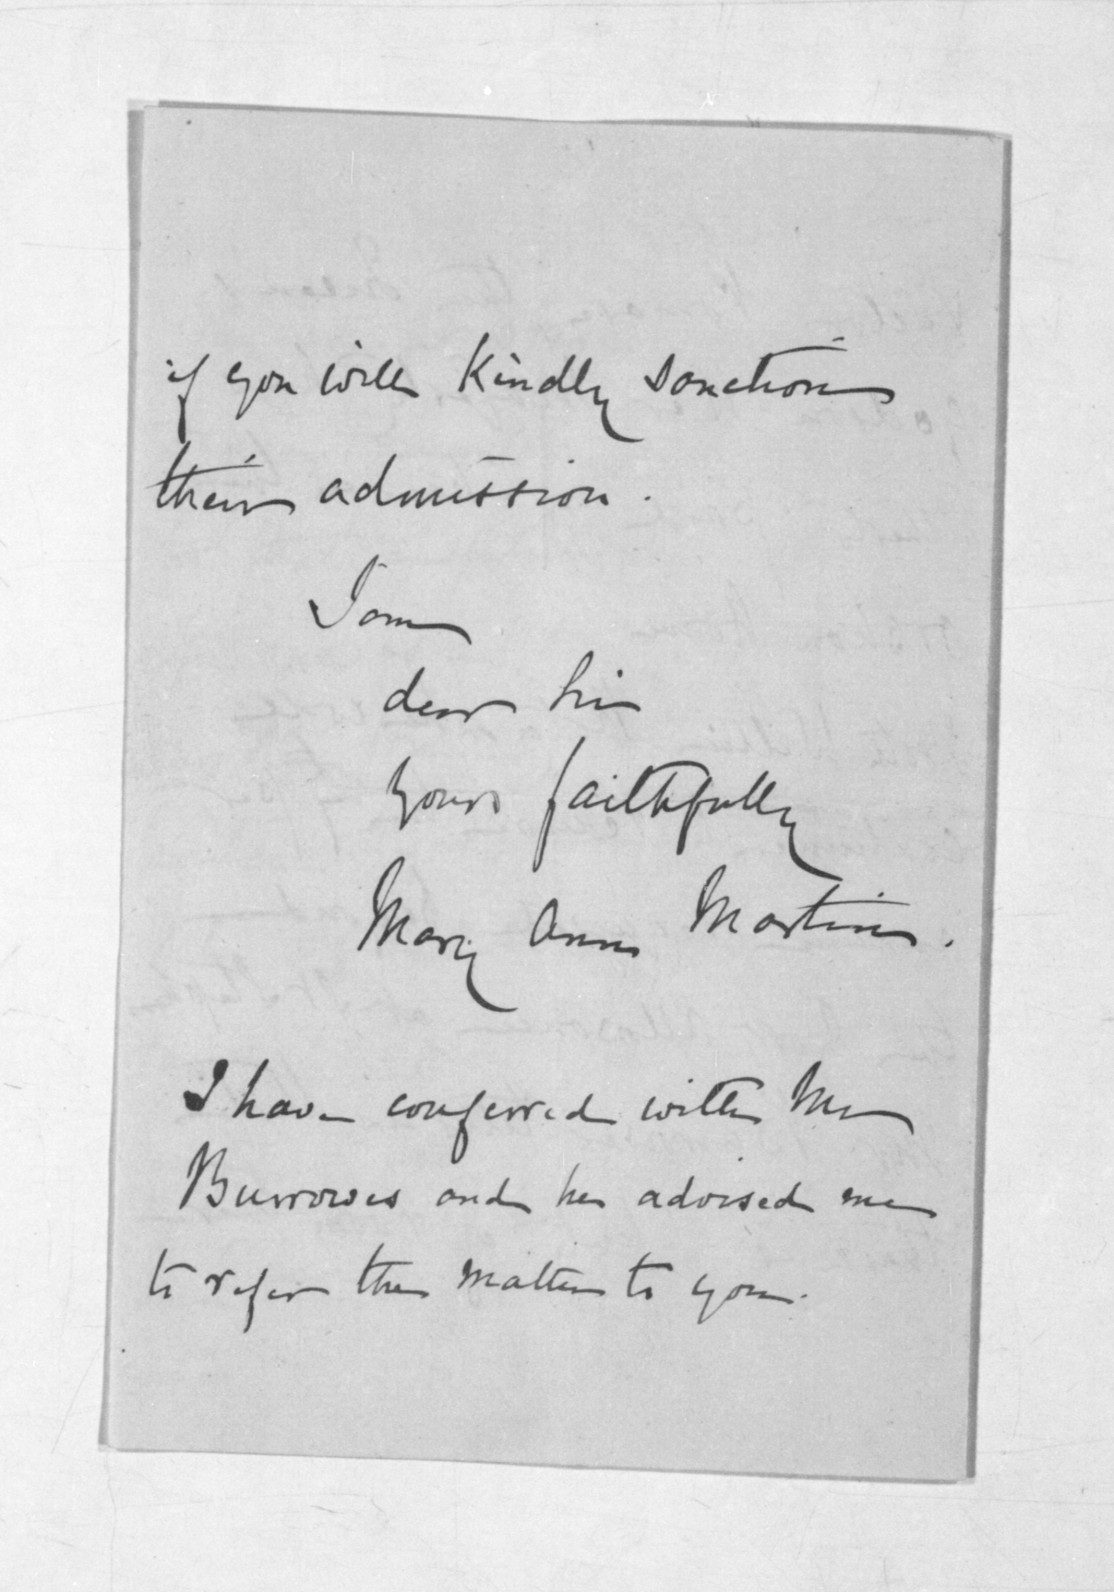 if you will kindly sanction
their admission.
I am
dear Sir
yours faithfully
Mary Ann Martin.
I have conferred with Mr
Burrowes and he advised me
to refer the matter to you.